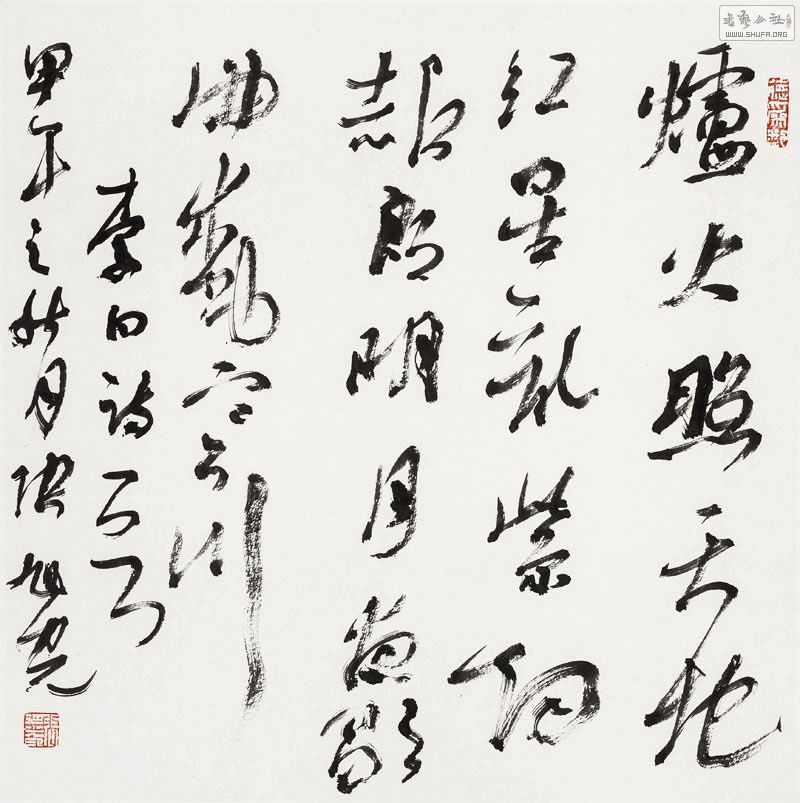 書藝公社
WWW.SHUFA.ORG
爐火照天地
紅星亂紫烟
赧郎明月夜歌
曲動寒川
李白詩一首
甲午之秋月張旭光